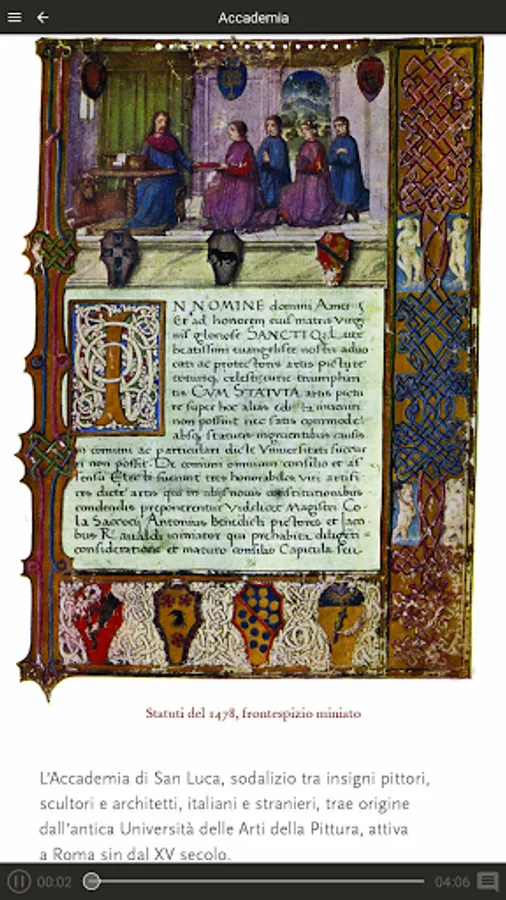 Accademia
N NOMINE domini Amen
Et ad honorem eius matris virgi
nis gloriose SANCTI Q Luce
beatissimi euangeliste nostri aduo
cati ac protectoris artis picture
totiusq celestis curie triumphan
tis CVM STATVTA artis pictu
re super hoc alias edita
non possint nec satis commode
absq statutis
n comuni ac particulari dicte Vniuersitatis succur
ri non possit De comuni omnium consilio et as
sensu Electi fuerunt tres honorabiles viri artifi
ces dicte artis qui in constitutionibus
condendis preponerentur Videlicet Magistri Co
la Sacconi Antonius Benedicti pictores et Jaco
bus miniator qui prehabita diligenti
consideratione et maturo consilio Capitula seu
Statuti del 1478, frontespizio miniato
L'Accademia di San Luca, sodalizio tra insigni pittori,
scultori e architetti, italiani e stranieri, trae origine
dall'antica Università delle Arti della Pittura, attiva
a Roma sin dal XV secolo.
00:02
04:06